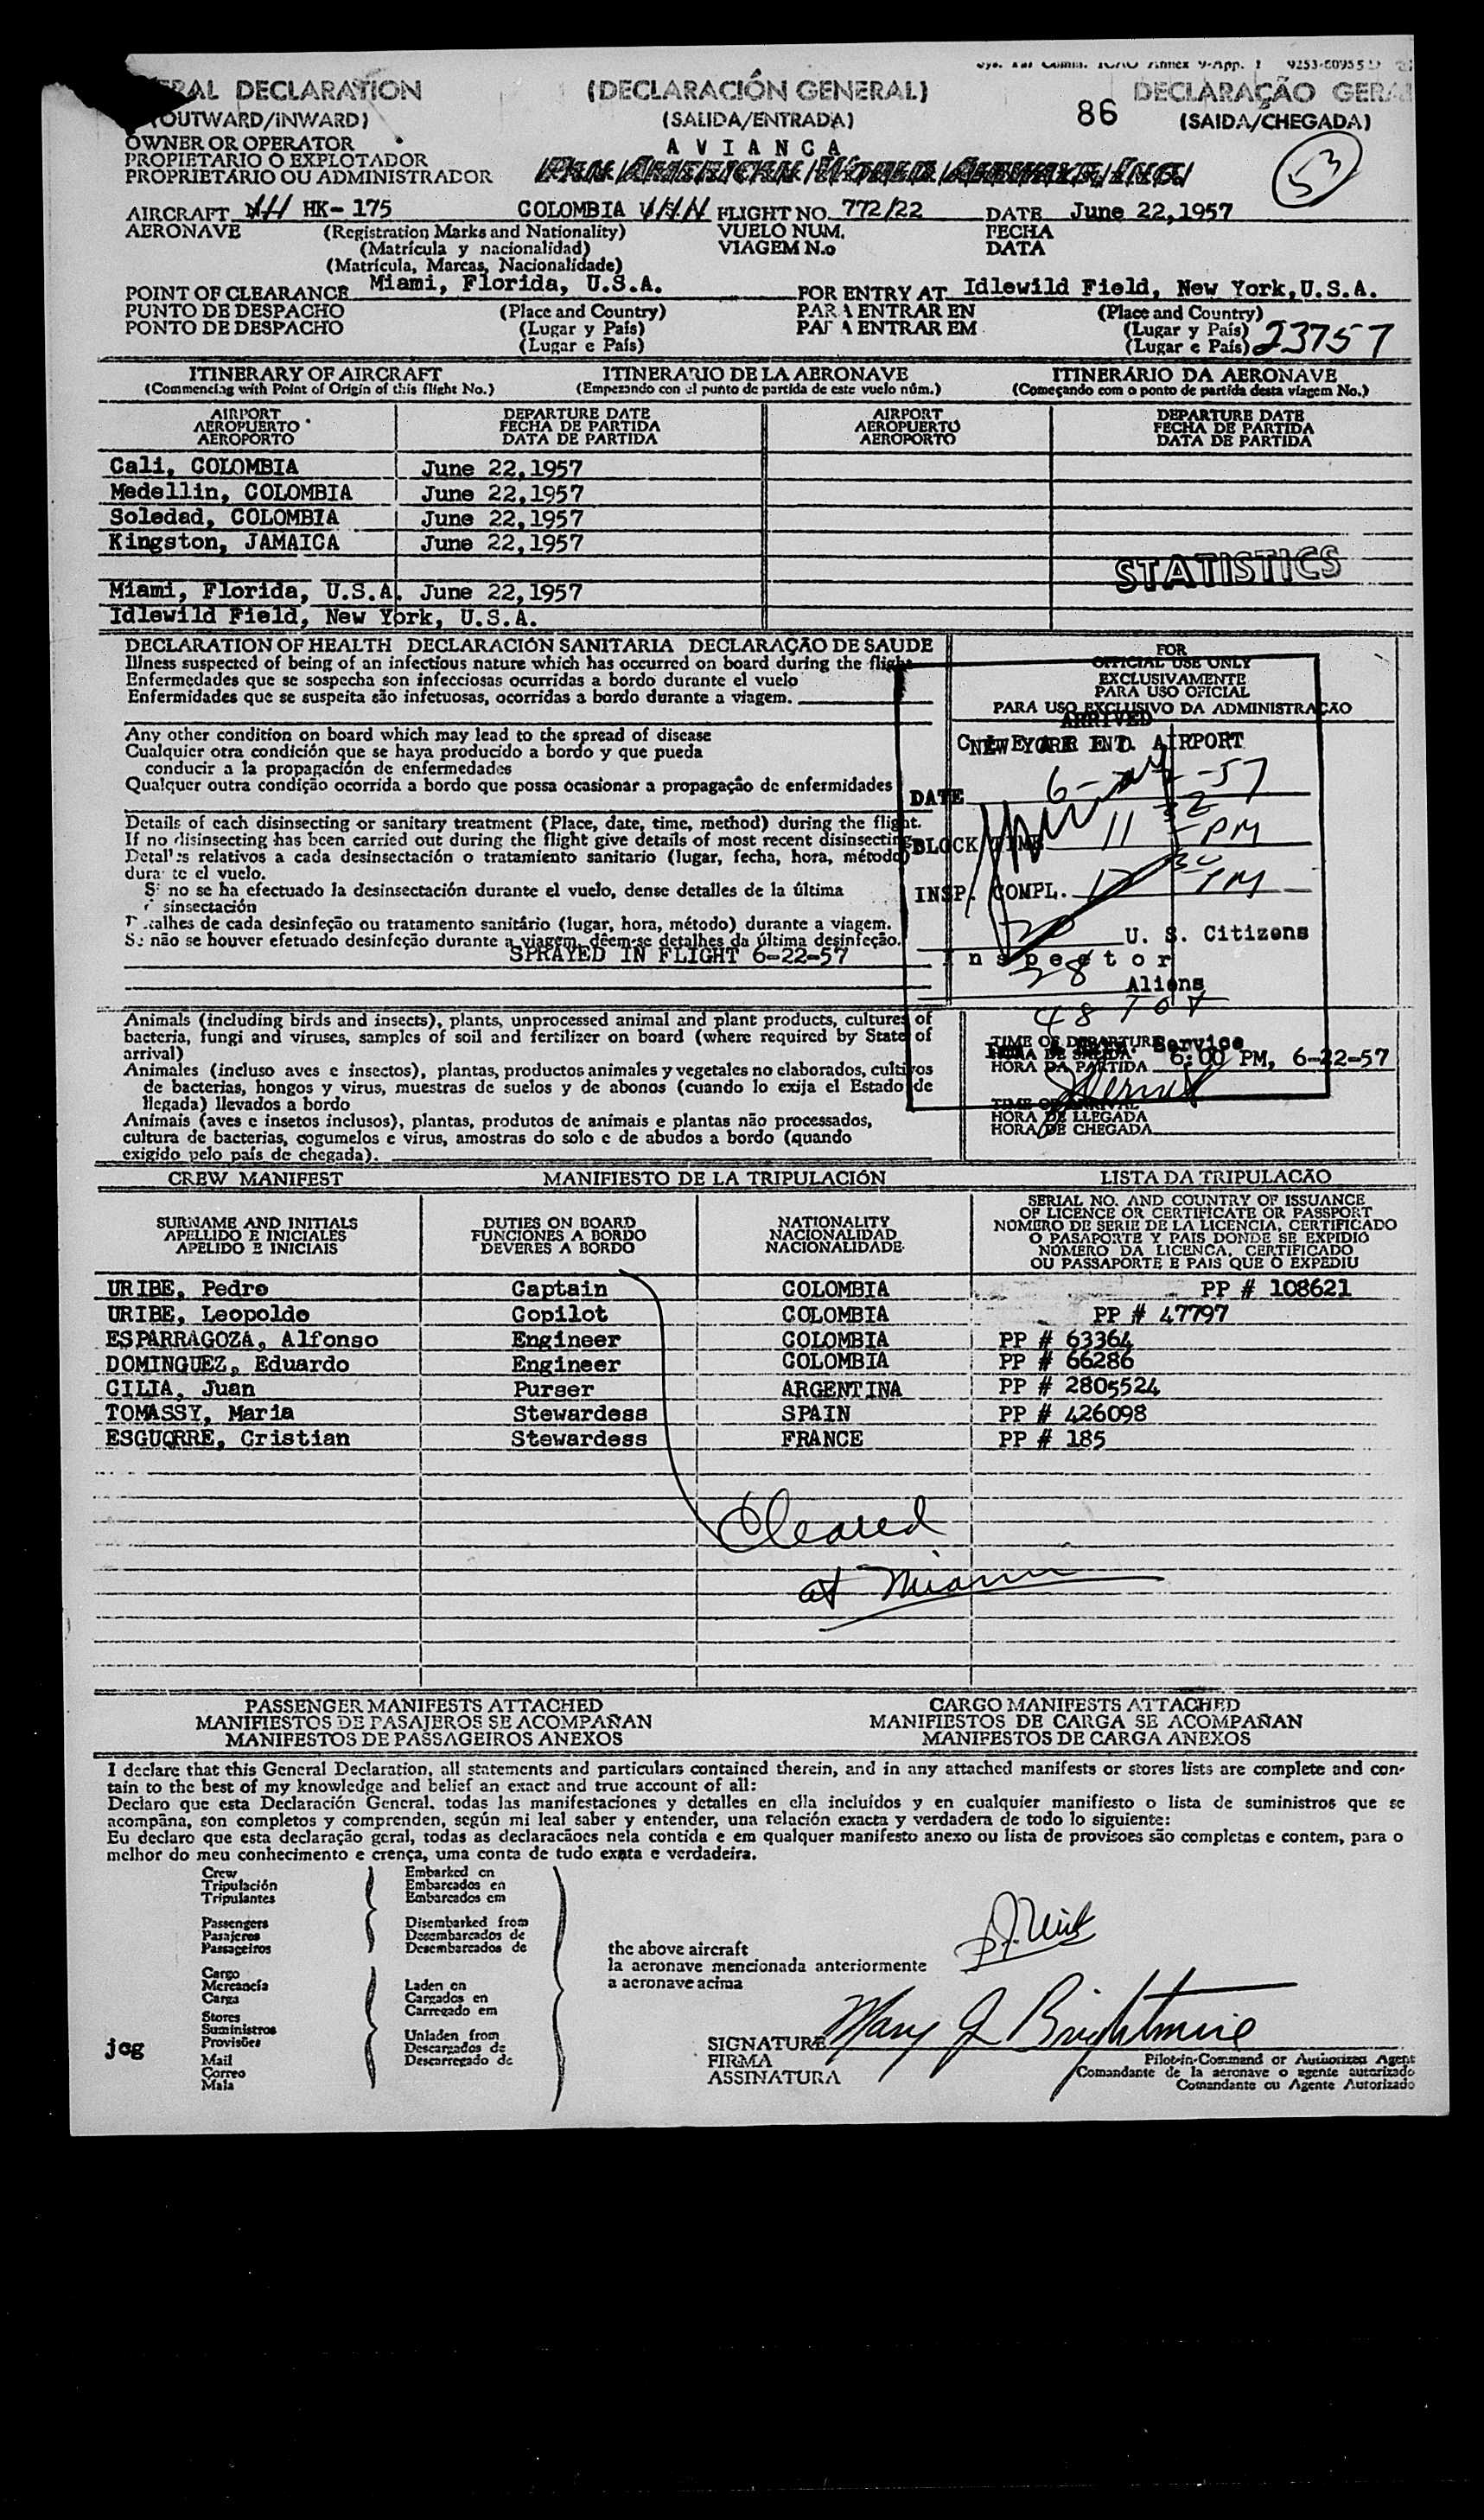 ERAL DECLARATION (DECLARACIÓN GENERAL) 86 DECLARAÇÃO GERA
(OUTWARD/INWARD) (SALIDA/ENTRADA) (SAIDA/CHEGADA)
OWNER OR OPERATOR AVIANCA
PROPIETARIO O EXPLOTADOR PAN AMERICAN WORLD AIRWAYS, INC. 53
PROPRIETÁRIO OU ADMINISTRADOR
AIRCRAFT HK-175 COLOMBIA FLIGHT NO. 772/22 DATE June 22,1957
AERONAVE (Registration Marks and Nationality) VUELO NUM. FECHA
(Matrícula y nacionalidad) VIAGEM N.o DATA
(Matrícula, Marcas, Nacionalidade)
POINT OF CLEARANCE Miami, Florida, U.S.A. FOR ENTRY AT Idlewild Field, New York,U.S.A.
PUNTO DE DESPACHO (Place and Country) PARA ENTRAR EN (Place and Country)
PONTO DE DESPACHO (Lugar y País) PARA ENTRAR EM (Lugar y País) 23757
(Lugar e País) (Lugar e País)
ITINERARY OF AIRCRAFT ITINERARIO DE LA AERONAVE ITINERÁRIO DA AERONAVE
(Commencing with Point of Origin of this flight No.) (Empezando con el punto de partida de este vuelo núm.) (Começando com o ponto de partida desta viagem No.)
AIRPORT DEPARTURE DATE AIRPORT DEPARTURE DATE
AEROPUERTO FECHA DE PARTIDA AEROPUERTO FECHA DE PARTIDA
AEROPORTO DATA DE PARTIDA AEROPORTO DATA DE PARTIDA
Cali, COLOMBIA June 22,1957
Medellin, COLOMBIA June 22,1957
Soledad, COLOMBIA June 22,1957
Kingston, JAMAICA June 22,1957
STATISTICS
Miami, Florida, U.S.A. June 22,1957
Idlewild Field, New York, U.S.A.
DECLARATION OF HEALTH DECLARACIÓN SANITARIA DECLARAÇÃO DE SAUDE
Illness suspected of being of an infectious nature which has occurred on board during the flight
Enfermedades que se sospecha son infecciosas ocurridas a bordo durante el vuelo
Enfermidades que se suspeita são infetuosas, ocorridas a bordo durante a viagem.
FOR
OFFICIAL USE ONLY
EXCLUSIVAMENTE
PARA USO OFICIAL
PARA USO EXCLUSIVO DA ADMINISTRAÇÃO
ARRIVED
NEW YORK INT. AIRPORT
Any other condition on board which may lead to the spread of disease
Cualquier otra condición que se haya producido a bordo y que pueda
conducir a la propagación de enfermedades
Qualquer outra condição ocorrida a bordo que possa ocasionar a propagação de enfermidades
DATE 6- -57
BLOCK TIME 11 32 PM
INSP. COMPL. 12
20 U. S. Citizens
Inspector
28 Aliens
48 TOT
Details of each disinsecting or sanitary treatment (Place, date, time, method) during the flight.
If no disinsecting has been carried out during the flight give details of most recent disinsecting.
Detalles relativos a cada desinsectación o tratamiento sanitario (lugar, fecha, hora, método)
durante el vuelo.
Si no se ha efectuado la desinsectación durante el vuelo, dense detalles de la última
desinsectación
Detalhes de cada desinfeção ou tratamento sanitário (lugar, hora, método) durante a viagem.
Se não se houver efetuado desinfeção durante a viagem, dêem-se detalhes da última desinfeção.
SPRAYED IN FLIGHT 6-22-57
Animals (including birds and insects), plants, unprocessed animal and plant products, cultures of
bacteria, fungi and viruses, samples of soil and fertilizer on board (where required by State of
arrival)
Animales (incluso aves e insectos), plantas, productos animales y vegetales no elaborados, cultivos
de bacterias, hongos y virus, muestras de suelos y de abonos (cuando lo exija el Estado de
llegada) llevados a bordo
Animais (aves e insetos inclusos), plantas, produtos de animais e plantas não processados,
cultura de bacterias, cogumelos e virus, amostras do solo e de abudos a bordo (quando
exigido pelo país de chegada).
TIME OF DEPARTURE Service
HORA DE SALIDA
HORA DA PARTIDA 6:00 PM, 6-22-57
TIME OF ARRIVAL
HORA DE LLEGADA
HORA DE CHEGADA
CREW MANIFEST MANIFIESTO DE LA TRIPULACIÓN LISTA DA TRIPULACÃO
SURNAME AND INITIALS DUTIES ON BOARD NATIONALITY SERIAL NO. AND COUNTRY OF ISSUANCE
APELLIDO E INICIALES FUNCIONES A BORDO NACIONALIDAD OF LICENCE OR CERTIFICATE OR PASSPORT
APELIDO E INICIAIS DEVERES A BORDO NACIONALIDADE NÚMERO DE SERIE DE LA LICENCIA, CERTIFICADO
O PASAPORTE Y PAIS DONDE SE EXPIDIÓ
NÚMERO DA LICENCA, CERTIFICADO
OU PASSAPORTE E PAIS QUE O EXPEDIU
URIBE, Pedro Captain COLOMBIA PP # 108621
URIBE, Leopoldo Copilot COLOMBIA PP # 47797
ESPARRAGOZA, Alfonso Engineer COLOMBIA PP # 63364
DOMINGUEZ, Eduardo Engineer COLOMBIA PP # 66286
CILIA, Juan Purser ARGENTINA PP # 2805524
TOMASSY, Maria Stewardess SPAIN PP # 426098
ESGUORRE, Cristian Stewardess FRANCE PP # 185
Cleared
at Miami
PASSENGER MANIFESTS ATTACHED CARGO MANIFESTS ATTACHED
MANIFIESTOS DE PASAJEROS SE ACOMPAÑAN MANIFIESTOS DE CARGA SE ACOMPAÑAN
MANIFESTOS DE PASSAGEIROS ANEXOS MANIFESTOS DE CARGA ANEXOS
I declare that this General Declaration, all statements and particulars contained therein, and in any attached manifests or stores lists are complete and con-
tain to the best of my knowledge and belief an exact and true account of all:
Declaro que esta Declaración General. todas las manifestaciones y detalles en ella incluídos y en cualquier manifiesto o lista de suministros que se
acompãna, son completos y comprenden, según mi leal saber y entender, una relación exacta y verdadera de todo lo siguiente:
Eu declaro que esta declaração geral, todas as declaracãoes nela contida e em qualquer manifesto anexo ou lista de provisoes são completas e contem, para o
melhor do meu conhecimento e crença, uma conta de tudo exata e verdadeira.
Crew Embarked on
Tripulación Embarcados en
Tripulantes Embarcados em
Passengers Disembarked from
Pasajeros Desembarcados de
Passageiros Desembarcados de
the above aircraft
la aeronave mencionada anteriormente
a aeronave acima
Cargo
Mercancía Laden on
Carga Cargados en
Stores Carregado em
Suministros
Provisões Unladen from
Mail Descargados de
Correo Descarregado de
Mala
jcg
SIGNATURE Mary J Brightmire
FIRMA Pilot-in-Command or Authorized Agent
ASSINATURA Comandante de la aeronave o agente autorizado
Comandante ou Agente Autorizado